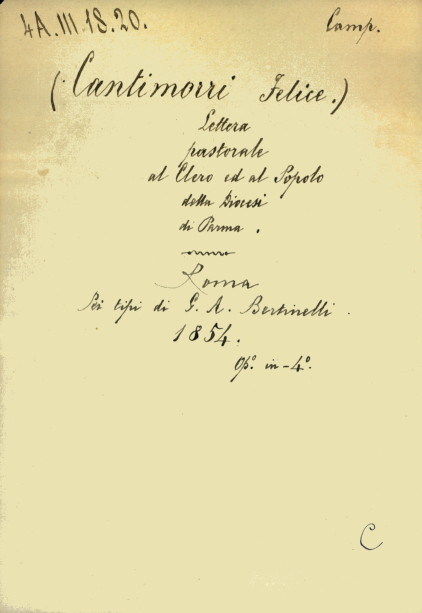 4A.III.18.20.
Camp.
(Cantimorri Felice.)
Lettera
pastorale
al Clero ed al Popolo
della Diocesi
di Parma.
Roma
Pei tipi di G. A. Bertinelli.
1854.
Op.° in-4°.
C